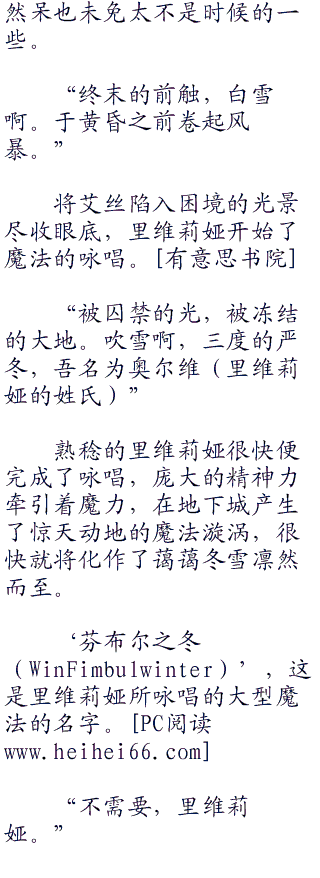 然呆也未免太不是时候的一
些。
“终末的前触，白雪
啊。于黄昏之前卷起风
暴。”
将艾丝陷入困境的光景
尽收眼底，里维莉娅开始了
魔法的咏唱。[有意思书院]
“被囚禁的光，被冻结
的大地。吹雪啊，三度的严
冬，吾名为奥尔维（里维莉
娅的姓氏）”
熟稔的里维莉娅很快便
完成了咏唱，庞大的精神力
牵引着魔力，在地下城产生
了惊天动地的魔法漩涡，很
快就将化作了蔼蔼冬雪凛然
而至。
‘芬布尔之冬
（WinFimbulwinter）’，这
是里维莉娅所咏唱的大型魔
法的名字。[PC阅读
www.heihei66.com]
“不需要，里维莉
娅。”